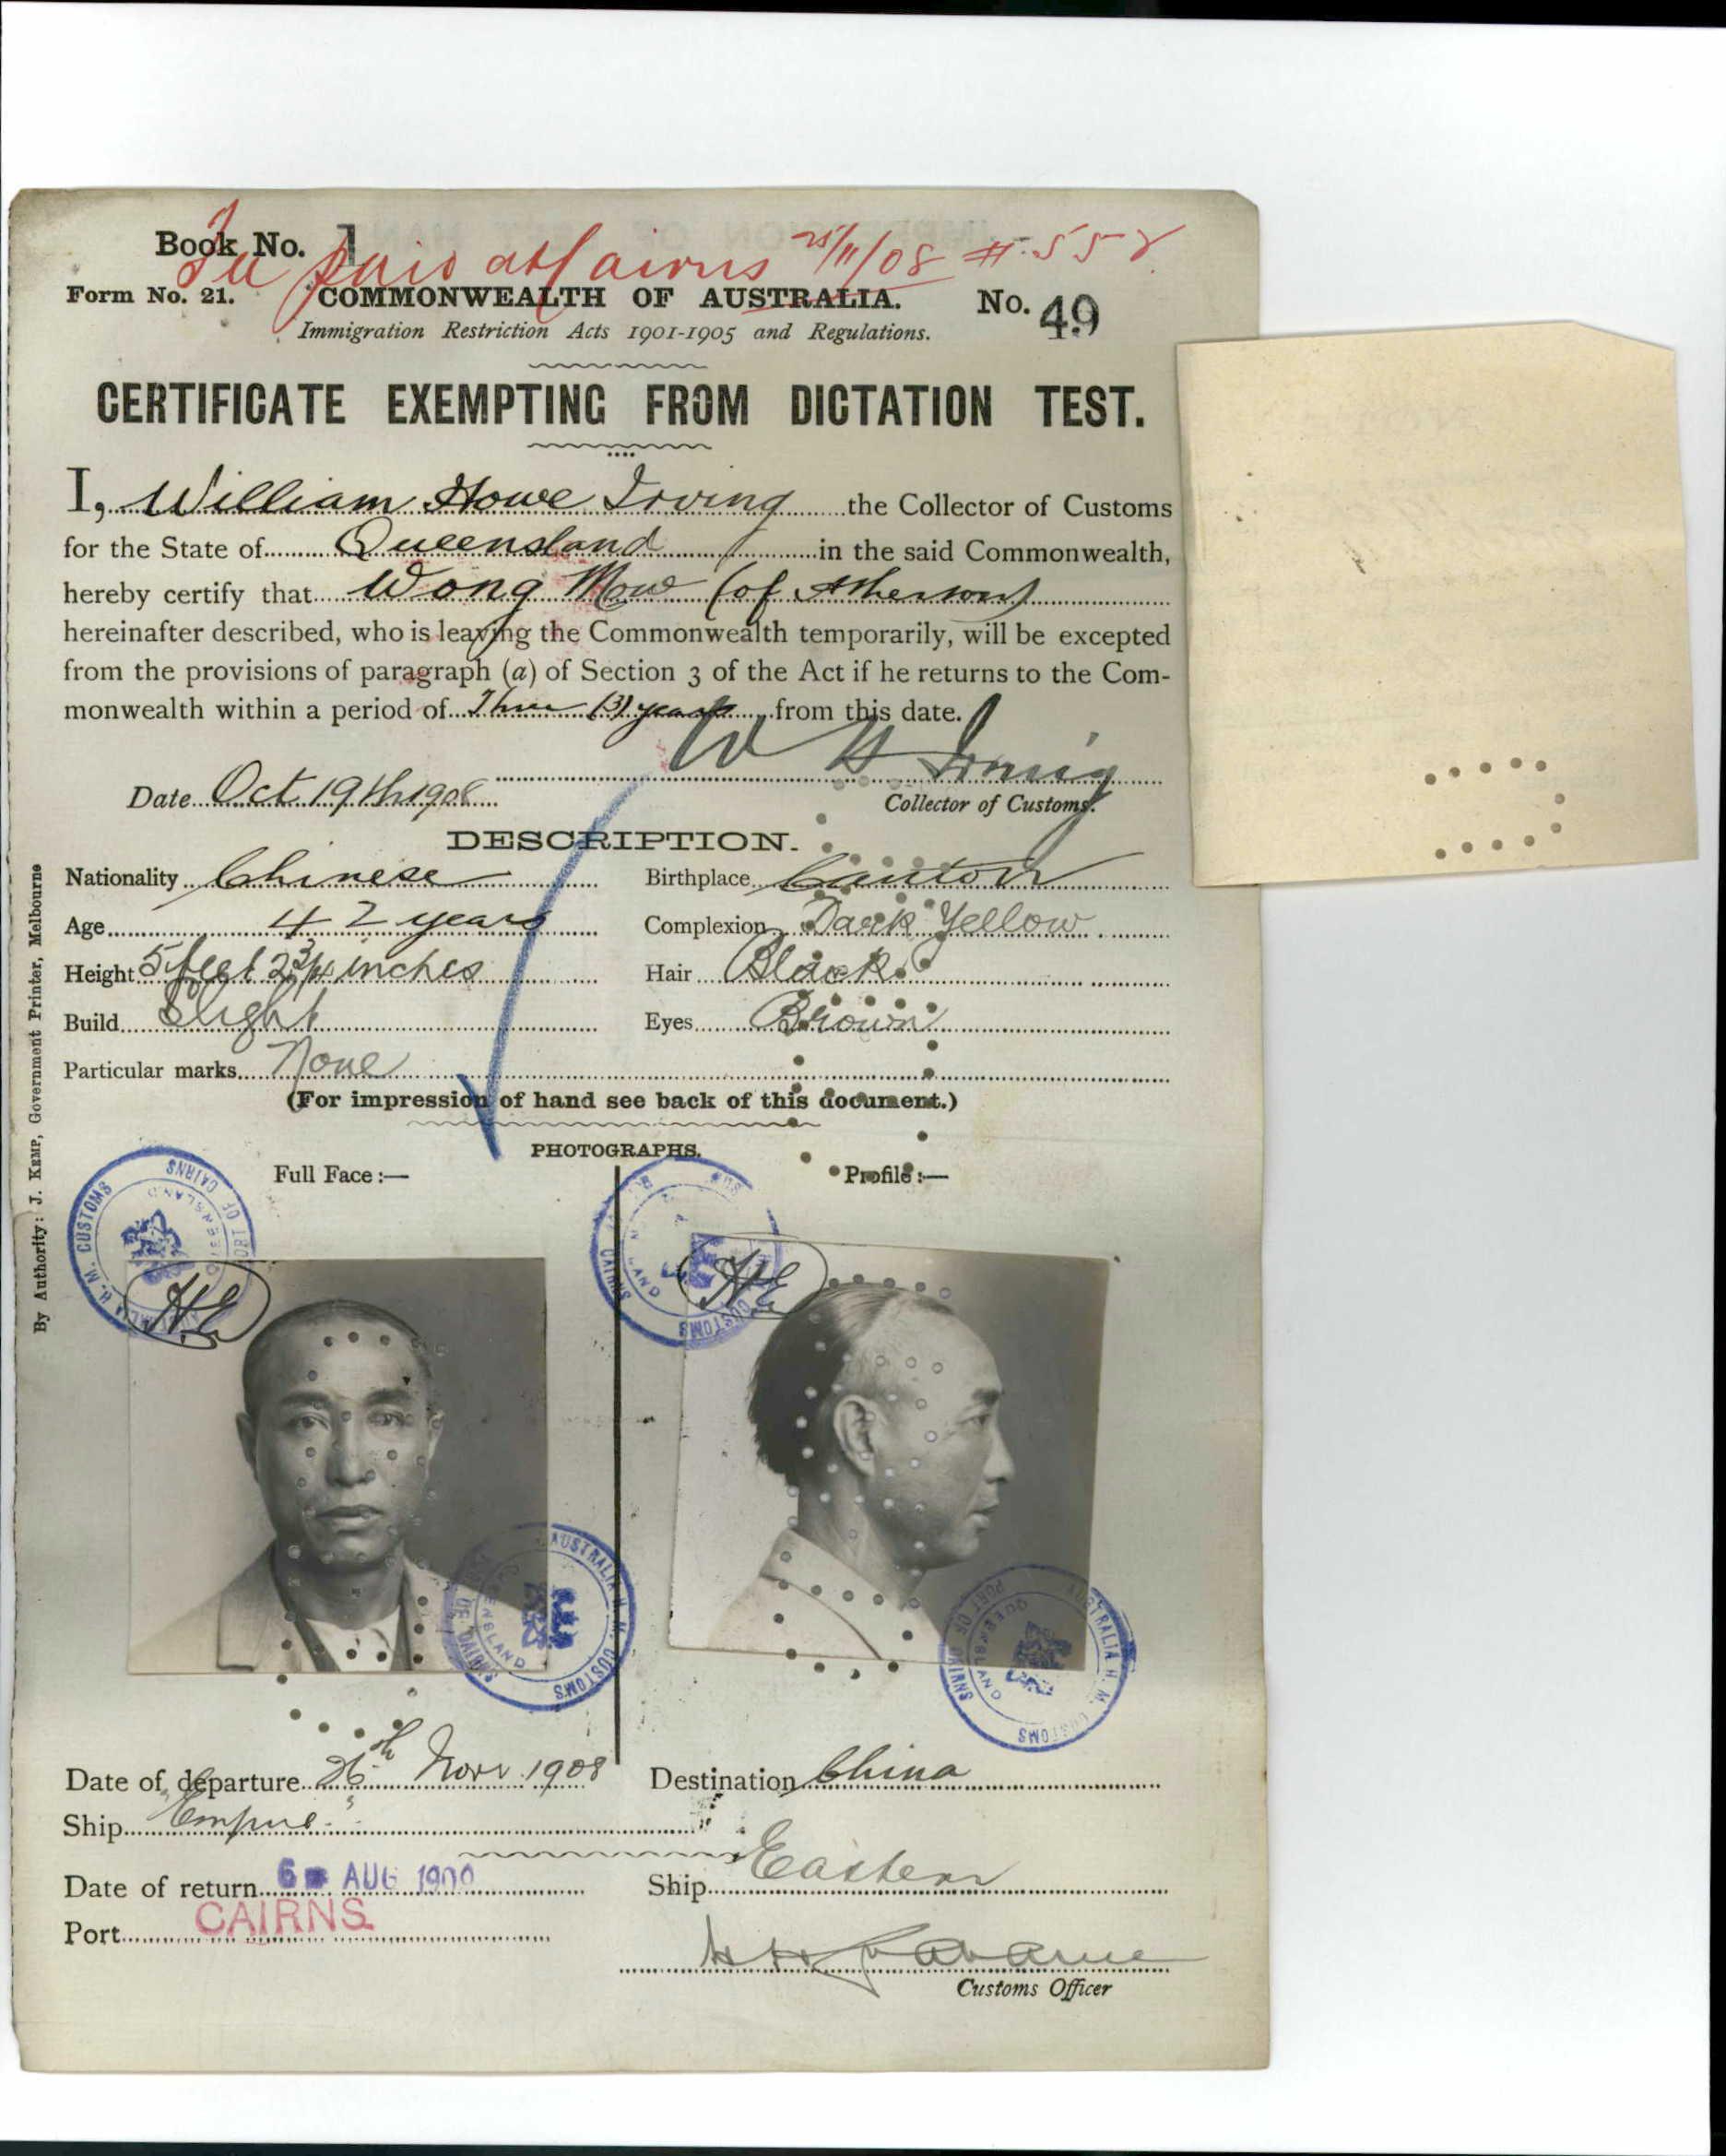 Book No. 1
Fee paid at Cairns 25/11/08 #.558
Form No. 21. COMMONWEALTH OF AUSTRALIA. No. 49
Immigration Restriction Acts 1901-1905 and Regulations.
CERTIFICATE EXEMPTING FROM DICTATION TEST.
I, William Howe Irving the Collector of Customs
for the State of Queensland in the said Commonwealth,
hereby certify that Wong Mow (of Atherton)
hereinafter described, who is leaving the Commonwealth temporarily, will be excepted
from the provisions of paragraph (a) of Section 3 of the Act if he returns to the Com-
monwealth within a period of Three (3) years from this date.
W H Irving
Date Oct 19th 1908
Collector of Customs.
DESCRIPTION.
Nationality Chinese Birthplace Canton
Age 42 years Complexion Dark Yellow
Height 5 feet 2 3/4 inches Hair Black
Build Slight Eyes Brown
Particular marks None
(For impression of hand see back of this document.)
PHOTOGRAPHS.
Full Face :— Profile :—
By Authority: J. KEMP, Government Printer, Melbourne
AUSTRALIA H. M. CUSTOMS PORT OF CAIRNS QUEENSLAND
HE
CUSTOMS CAIRNS
HE
AUSTRALIA H. M. CUSTOMS OF CAIRNS QUEENSLAND
AUSTRALIA H. M. CUSTOMS PORT OF CAIRNS QUEENSLAND
Date of departure 26th Novr 1908 Destination China
Ship "Empire"
Date of return 6 AUG 1909 Ship Eastern
Port CAIRNS
Customs Officer